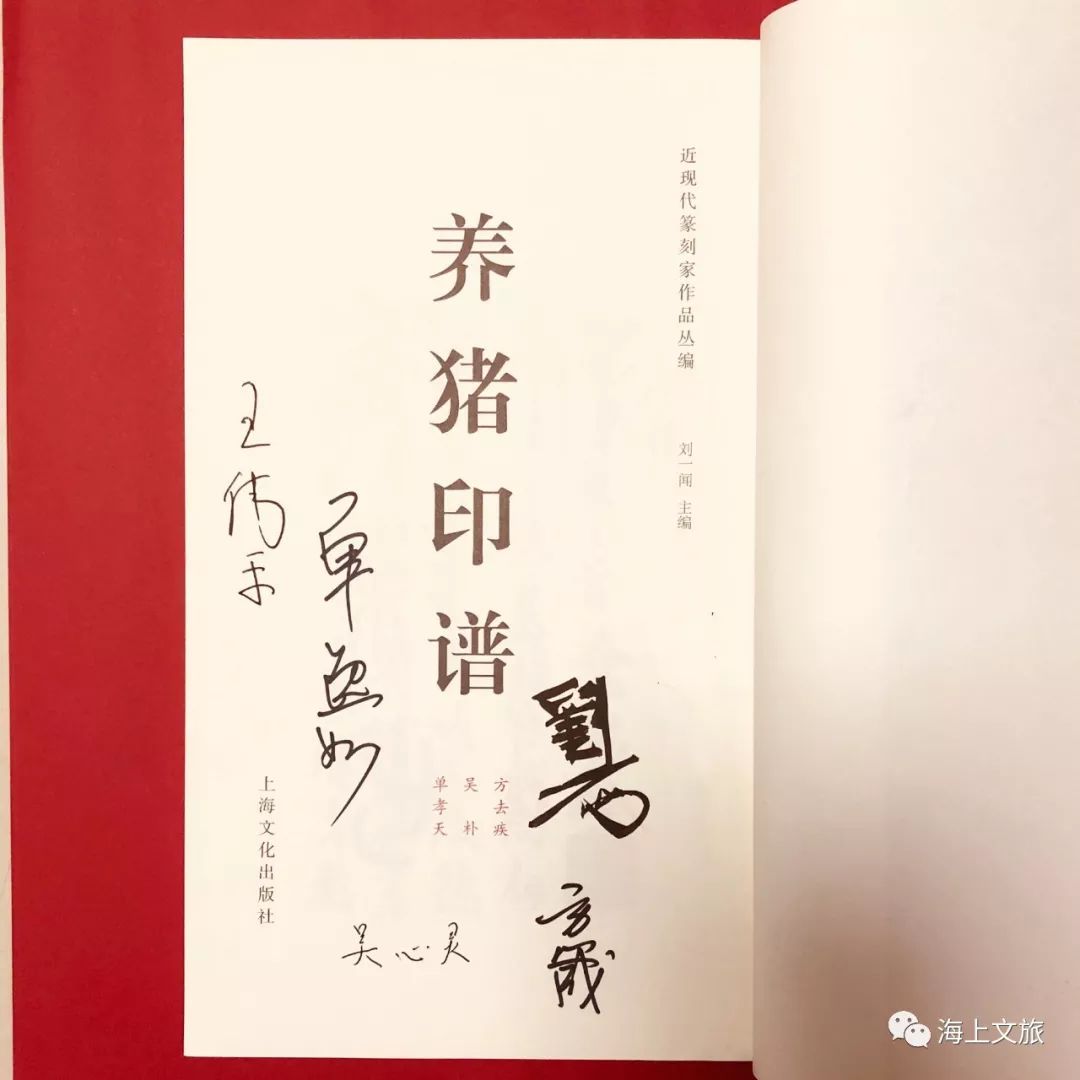 近现代篆刻家作品丛编
刘一闻 主编
养猪印谱
方去疾
吴朴
单孝天
上海文化出版社
王伟平
单逸妙
吴心灵
海上文旅